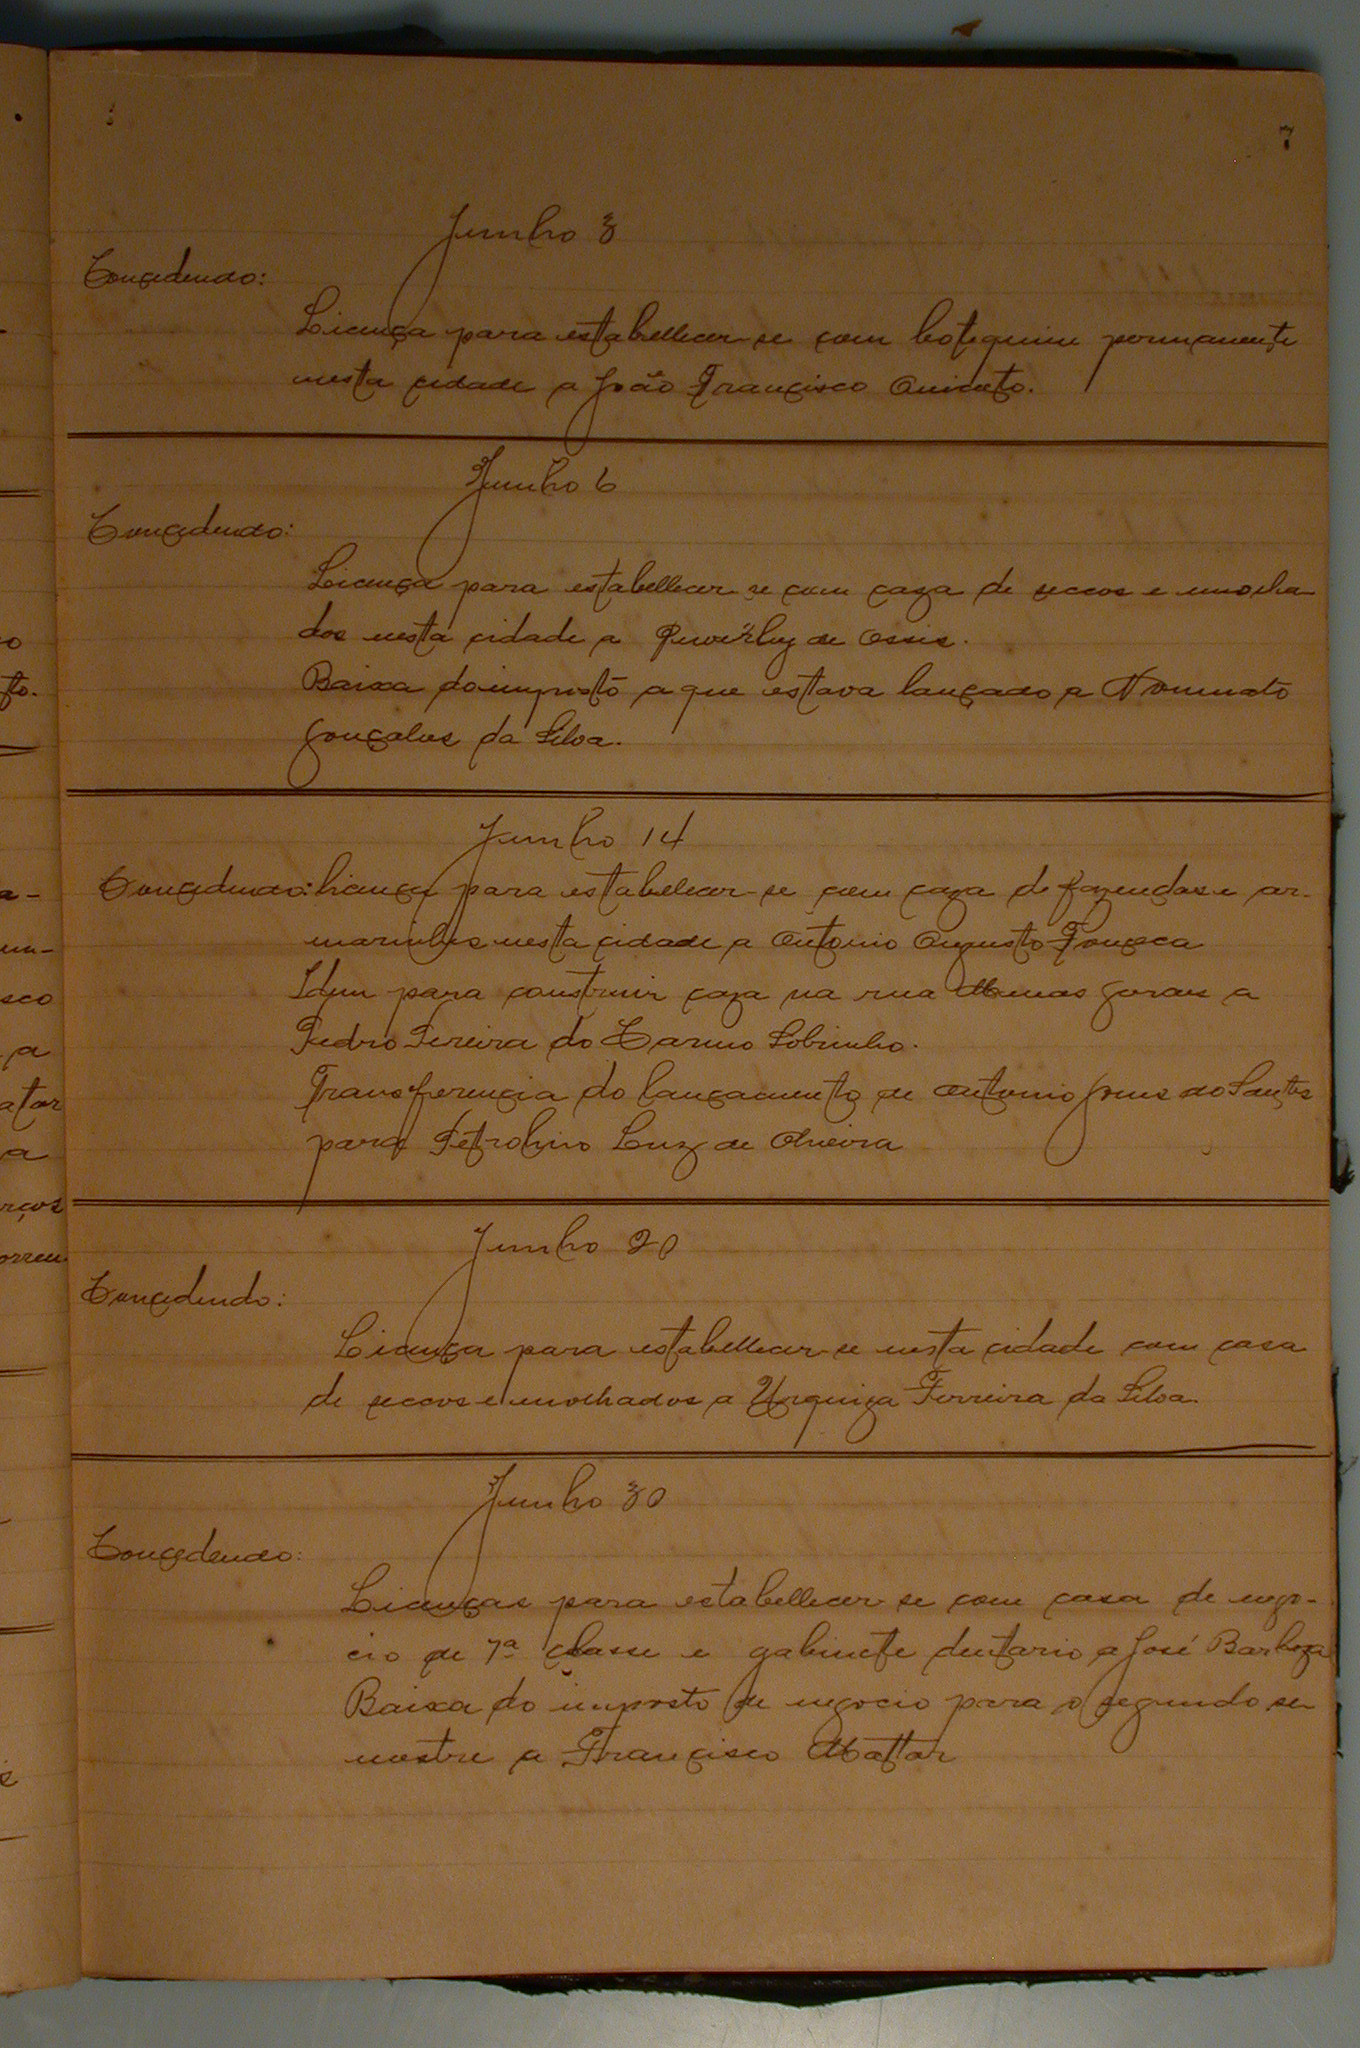 7
Junho 3
Concedendo:
Licença para estabellecer-se com botequim permanente
nesta cidade a João Francisco Aniceto.
Junho 6
Concedendo:
Licença para estabellecer-se com caza de seccos e molha
dos nesta cidade a de Assis.
Baixa do imposto a que estava lançado a Nominato
Gonçalves da Silva.
Junho 14
Concedendo: licença para estabellecer-se com caza de fazendas e ar-
marinhos nesta cidade a Antonio Augusto Fonseca
Idem para construir caza na rua Minas Geraes a
Pedro Pereira do Carmo Sobrinho.
Transferencia do lançamento de Antonio Gomes dos Santos
para Petrolino Luz de Oliveira
Junho 20
Concedendo:
Licença para estabellecer-se nesta cidade com casa
de seccos e molhados a Urquiza Ferreira da Silva.
Junho 30
Concedendo:
Licenças para estabellecer-se com casa de nego-
cio de 7ª classe e gabinete dentario a José Barboza
Baixa do imposto de negocio para o segundo se
mestre a Francisco Mattar